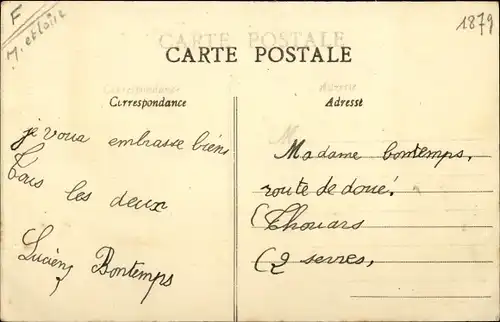 F
M. et loire
1879
CARTE POSTALE
Correspondance
Adresse
je vous embrasse biens
Tous les deux
Lucien Bontemps
Madame bontemps,
route de doué.
(Thouars
(2 sevres,